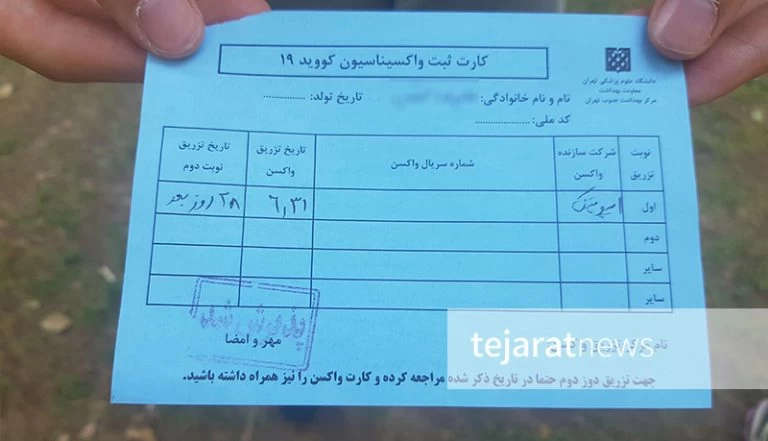 کارت ثبت واکسیناسیون کووید ۱۹
دانشگاه علوم پزشکی تهران
معاونت بهداشت
مرکز بهداشت جنوب تهران
نام و نام خانوادگی:
تاریخ تولد: ...............
کد ملی: ......................
نوبت تزریق
شرکت سازنده واکسن
شماره سریال واکسن
تاریخ تزریق واکسن
تاریخ تزریق نوبت دوم
اول
۶,۳۱
۲۸ روز بعد
دوم
سایر
سایر
مهر و امضا
نام
tejaratnews
جهت تزریق دوز دوم حتما در تاریخ ذکر شده مراجعه کرده و کارت واکسن را نیز همراه داشته باشید.